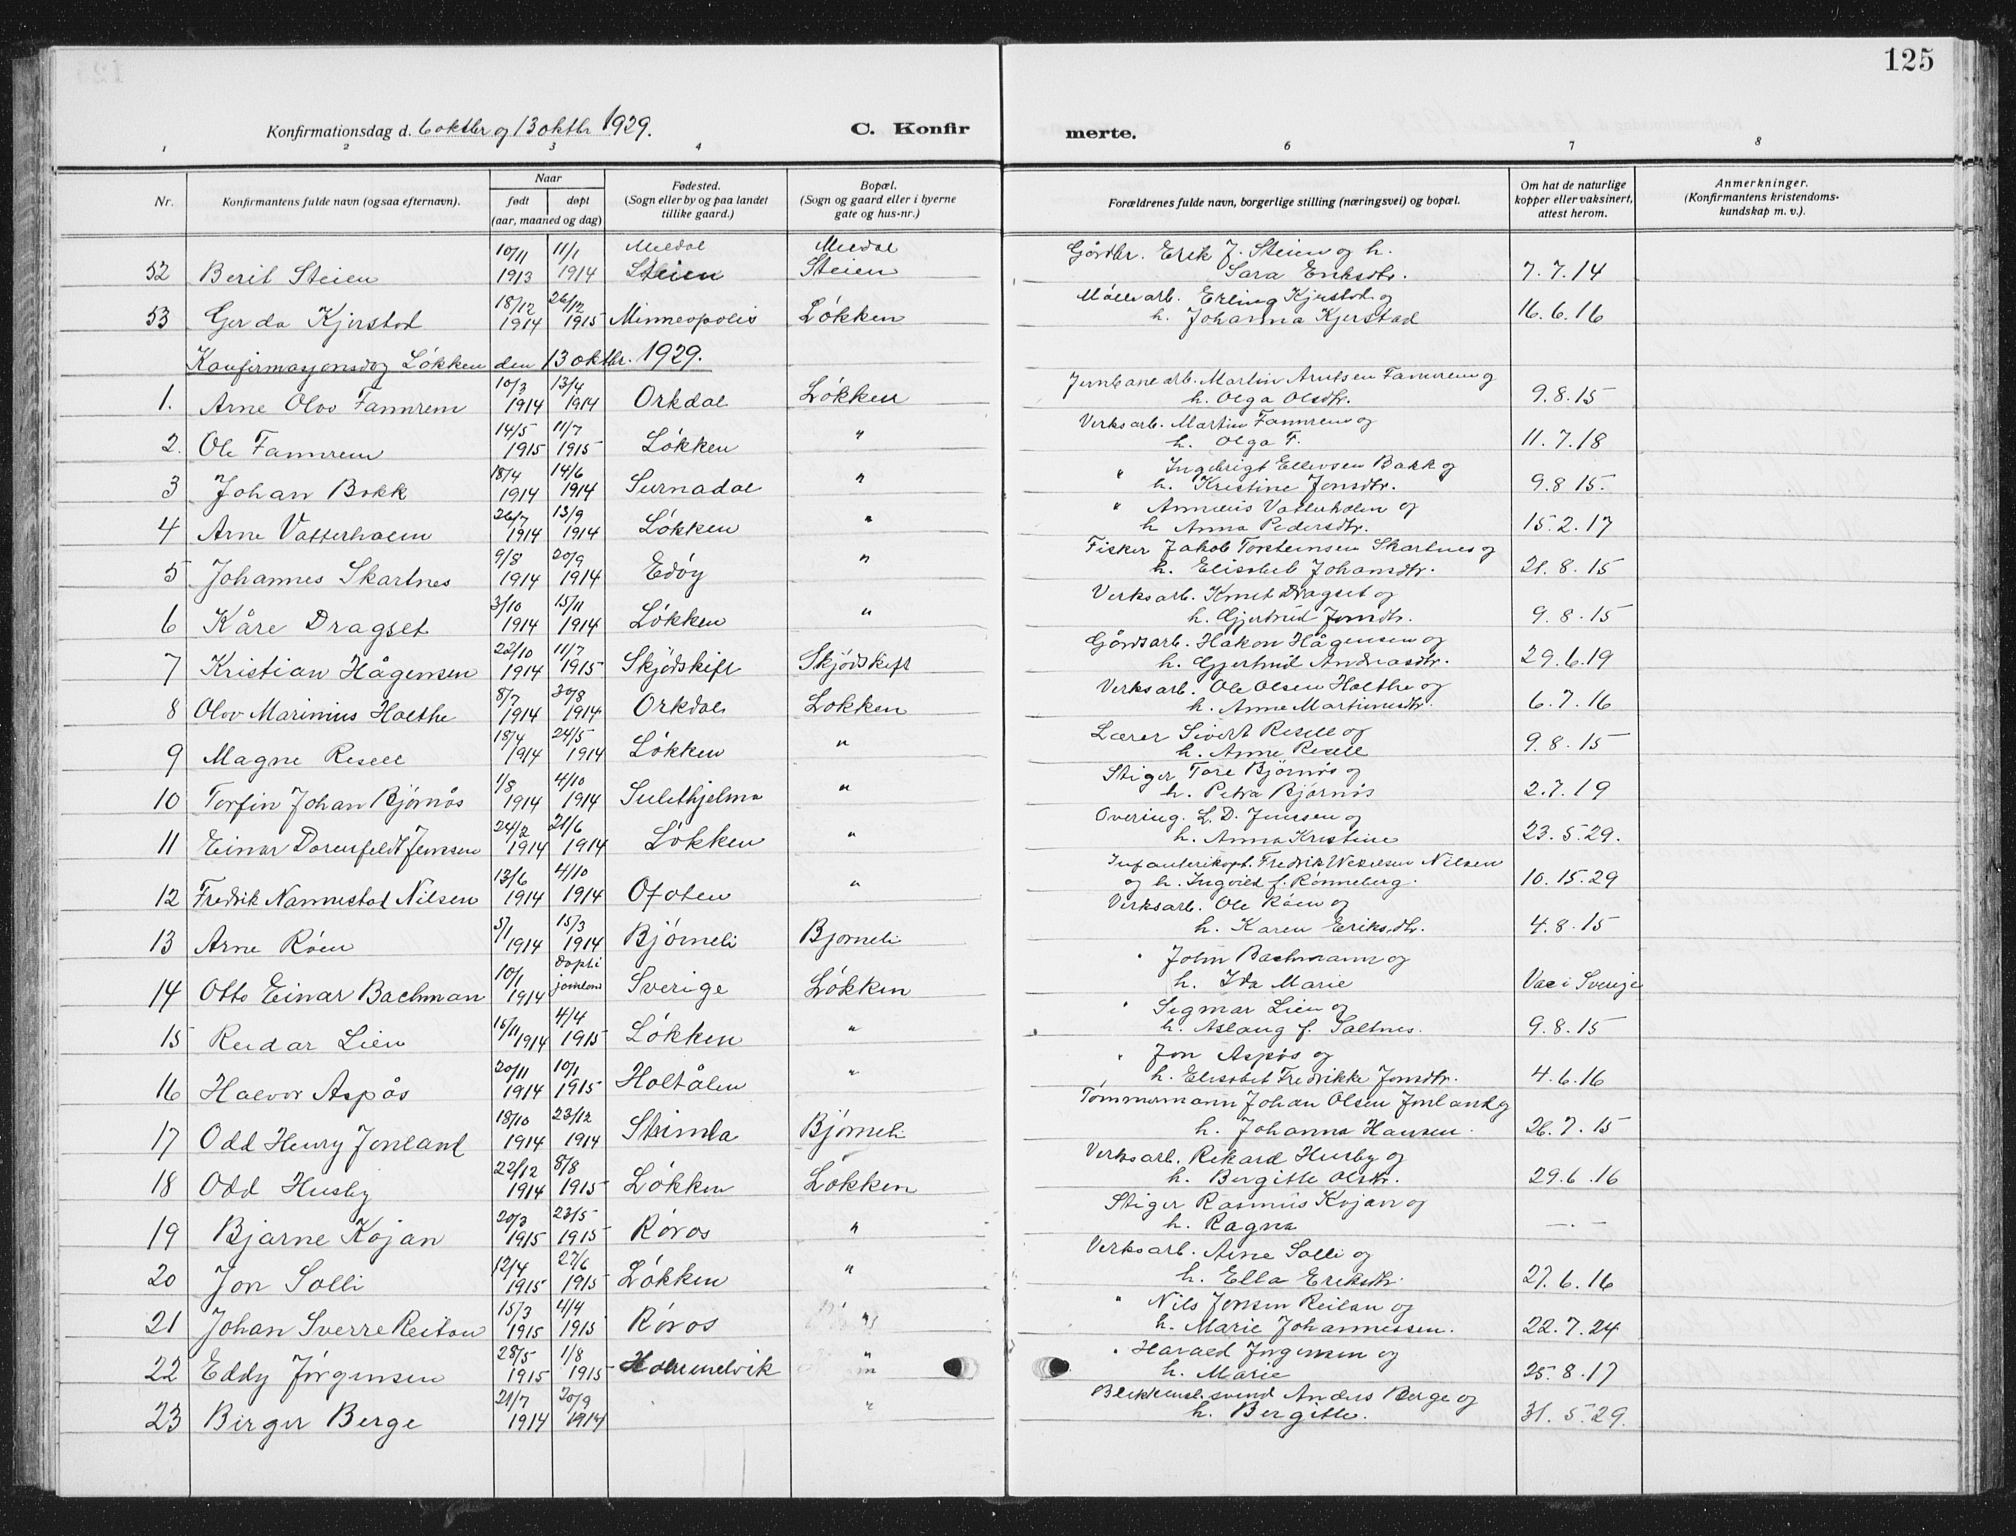 125
Konfirmationsdag d. 6 oktbr og 13 oktbr 1929.
C. Konfir
merte.
1 2 3 4 6 7 8
Nr.
Konfirmantens fulde navn (ogsaa efternavn).
Naar
født døpt
(aar, maaned og dag)
Fødested.
(Sogn eller by og paa landet
tillike gaard.)
Bopæl.
(Sogn og gaard eller i byerne
gate og hus-nr.)
Forældrenes fulde navn, borgerlige stilling (næringsvei) og bopæl.
Om hat de naturlige
kopper eller vaksinert,
attest herom.
Anmerkninger.
(Konfirmantens kristendoms-
kundskap m. v.).
10/11 11/1 Meldal Meldal Gårdbr. Erik J. Steien og h.
52 Berit Steien 1913 1914 Steien Steien Sara Eriksdtr. 7.7.14
18/12 26/12 Møllearb. Erling Kjerstad og
53 Gerda Kjerstad 1914 1915 Minneopolis Løkken h. Johanna Kjerstad 16.6.16
Konfirmasjonsdag Løkken den 13 oktbr. 1929.
10/3 13/4 Jernbanearb. Martin Arntsen Famrem og
1. Arne Olav Famrem 1914 1914 Orkdal Løkken h. Olga Olsdtr. 9.8.15
14/5 11/7 Verksarb. Martin Famrem og
2. Ole Famrem 1915 1915 Løkken " h. Olga F. 11.7.18
18/4 14/6 " Ingebrigt Ellevsen Bakk og
3 Johan Bakk 1914 1914 Surnadal " h. Kristine Jonsdtr. 9.8 15.
26/7 13/9 " Vatterholen og
4 Arne Vatterholm 1914 1914 Løkken " h Anna Pedersdtr. 15.2.17
9/8 20/9 Fisker Jakob Torsteinsen Skartnes og
5 Johannes Skartnes 1914 1914 Edøy " h. Elisabet Johansdtr. 21.8.15
3/10 15/11 Verksarb. Knut Dragset og
6 Kåre Dragset 1914 1914 Løkken " h. Gjertrud Jonsdtr. 9.8.15
22/10 11/7 Gårdsarb. Håkon Hågensen og
7 Kristian Hågensen 1914 1915 Skjødskift Skjødskift h. Gjertrud Andreasdtr. 29.6.19
8/7 30/8 Verksarb. Ole Olsen Holthe og
8 Olav Marinius Holthe 1914 1914 Orkdal Løkken h. Anne Martinusdtr. 6.7.16
18/4 24/5 Lærer Sivert Resell og
9 Magne Resell 1914 1914 Løkken " h. Anne Resell 9.8.15
1/8 4/10 Stiger Tore Bjørnås og
10 Torfin Johan Bjørnås 1914 1914 Sulithjelma " h. Petra Bjørnås 2.7.19
24/2 21/6 Overing. L. D. Jenssen og
11 Einar Dorenfeldt Jenssen 1914 1914 Løkken " h. Anna Kristine 23.5.29.
13/6 4/10 Infanterikapt. Fredrik Wesselsen Nilsen
12 Fredrik Nannestad Nilsen 1914 1914 Ofoten " og h. Ingvild f. Rønneberg. 10.15.29
5/1 15/3 Verksarb. Ole Røen og
13 Arne Røen 1914 1914 Bjørneli Bjørneli h. Karen Eriksdtr. 4.8.15
10/1 Døpt i " John Bachmann og
14 Otto Einar Bachman 1914 Sverige Løkken h. Ida Marie Vac i Sverige
15/11 4/4 " Sigmar Lien og
15 Reidar Lien 1914 1915 Løkken " h. Aslaug f. Saltnes. 9.8.15
20/11 10/1 " Jon Aspås og
16 Halvor Aspås 1914 1915 Holtålen " h. Elisabet Fredrikke Jonsdtr. 4.6.16
18/10 23/12 Tømmermann Johan Olsen Jonland og
17 Odd Henry Jonland 1914 1914 Strinda Bjørneli h. Johanna Hansen. 26.7.15
22/12 8/8 Verksarb. Rikard Husby og
18 Odd Husby 1914 1915 Løkken Løkken h. Bergitte Olsdtr. 29.6.16
20/3 23/5 Stiger Rasmus Kojan og
19 Bjarne Kojan 1915 1915 Røros " h. Ragna —.—
12/4 27/6 Verksarb. Arne Solli og
20 Jon Solli 1915 1915 Løkken " h. Ella Eriksdtr. 27.6.16
15/3 4/4 " Nils Jonsen Reitan og
21 Johan Sverre Reitan 1915 1915 Røros " h. Marie Johannessen. 22.7.24
28/5 1/8 " Harald Jørgensen og
22 Eddy Jørgensen 1915 1915 Hommelvik " h. Marie 25.8.17
21/7 20/9 Blikkensl. svend Anders Berge og
23 Birger Berge 1914 1914 " h. Bergitte. 31.5.29.